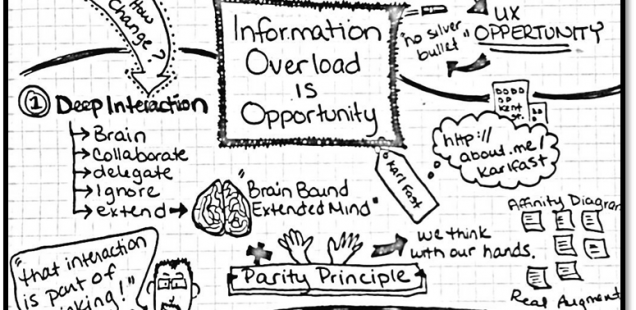 How
Change?
Information
Overload
is
Opportunity
"no silver
bullet"
UX
OPPERTUNITY
① Deep Interaction
Brain
Collaborate
delegate
Ignore
extend
"Brain Bound
Extended Mind"
Karl Fast
Kent
http://
about.me/
Karlfast
we think
with our hands.
Parity Principle
"that interaction
is part of
inking!"
Affinity Diagra
Real Augment